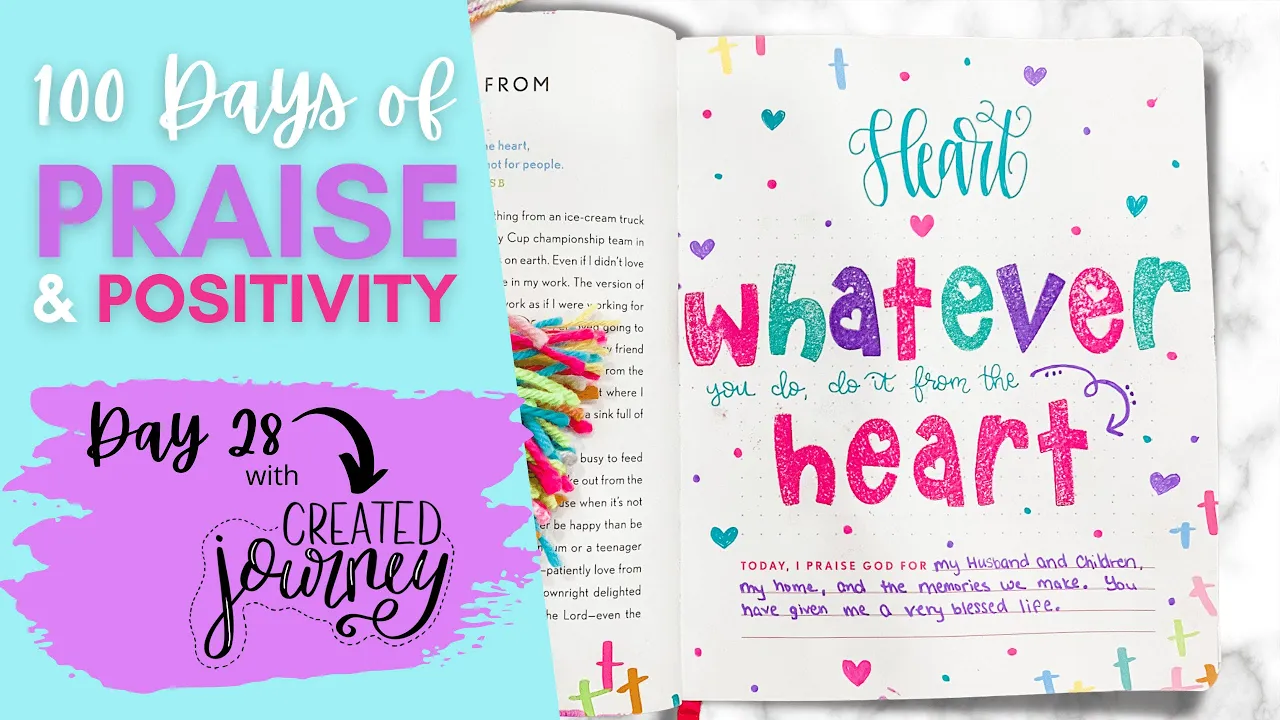 100 Days of
PRAISE
& POSITIVITY
Day 28
with
CREATED
journey
FROM
heart,
not for people.
SB
thing from an ice-cream truck
Cup championship team in
on earth. Even if I didn't love
in my work. The version of
work as if I were working for
going to
friend
from the
where I
a sink full of
busy to feed
out from the
use when it's not
be happy than be
or a teenager
patiently love from
ownright delighted
the Lord—even the
Heart
whatever
you do, do it from the
heart
TODAY, I PRAISE GOD FOR my Husband and Children,
my home, and the memories we make. You
have given me a very blessed life.